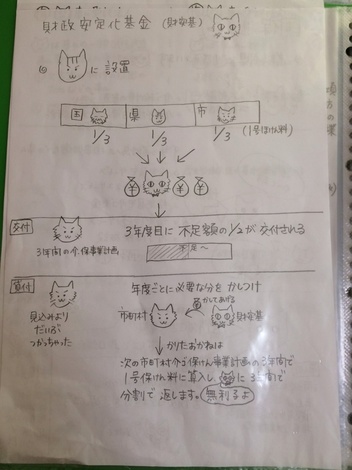 財政安定化基金 (財安基)
に 設置
国 県 市
1/3 1/3 1/3 (1号ほけん料)
¥ ¥ ¥
交付
3年度目に 不足額の1/2が 交付される
3年間の介保事業計画
不足〜
貸付
年度ごとに必要な分を かしつけ
見込みより
だいぶ
つかっちゃった
かしてあげる
市町村 財安基
かりたおかねは
次の市町村介ゴ保けん事業計画の3年間で
1号保けん料に算入し、に3年間で
分割で 返します。無利子よ